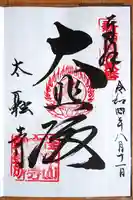 奉拝
令和四年八月十一日
大悲殿
太融寺